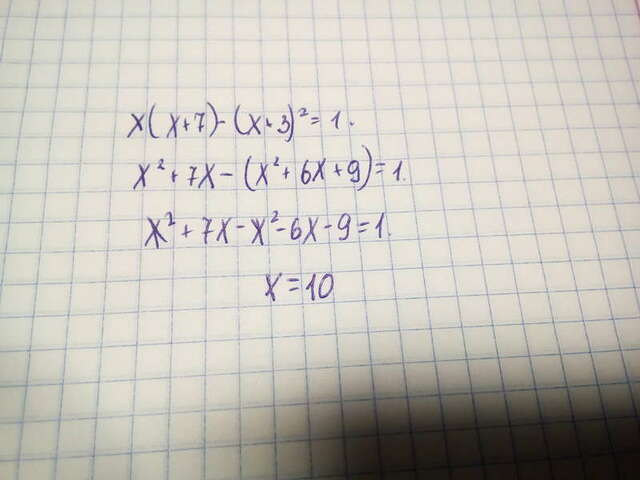 x(x+7)-(x+3)²=1.
x²+7x-(x²+6x+9)=1.
x²+7x-x²-6x-9=1.
x=10